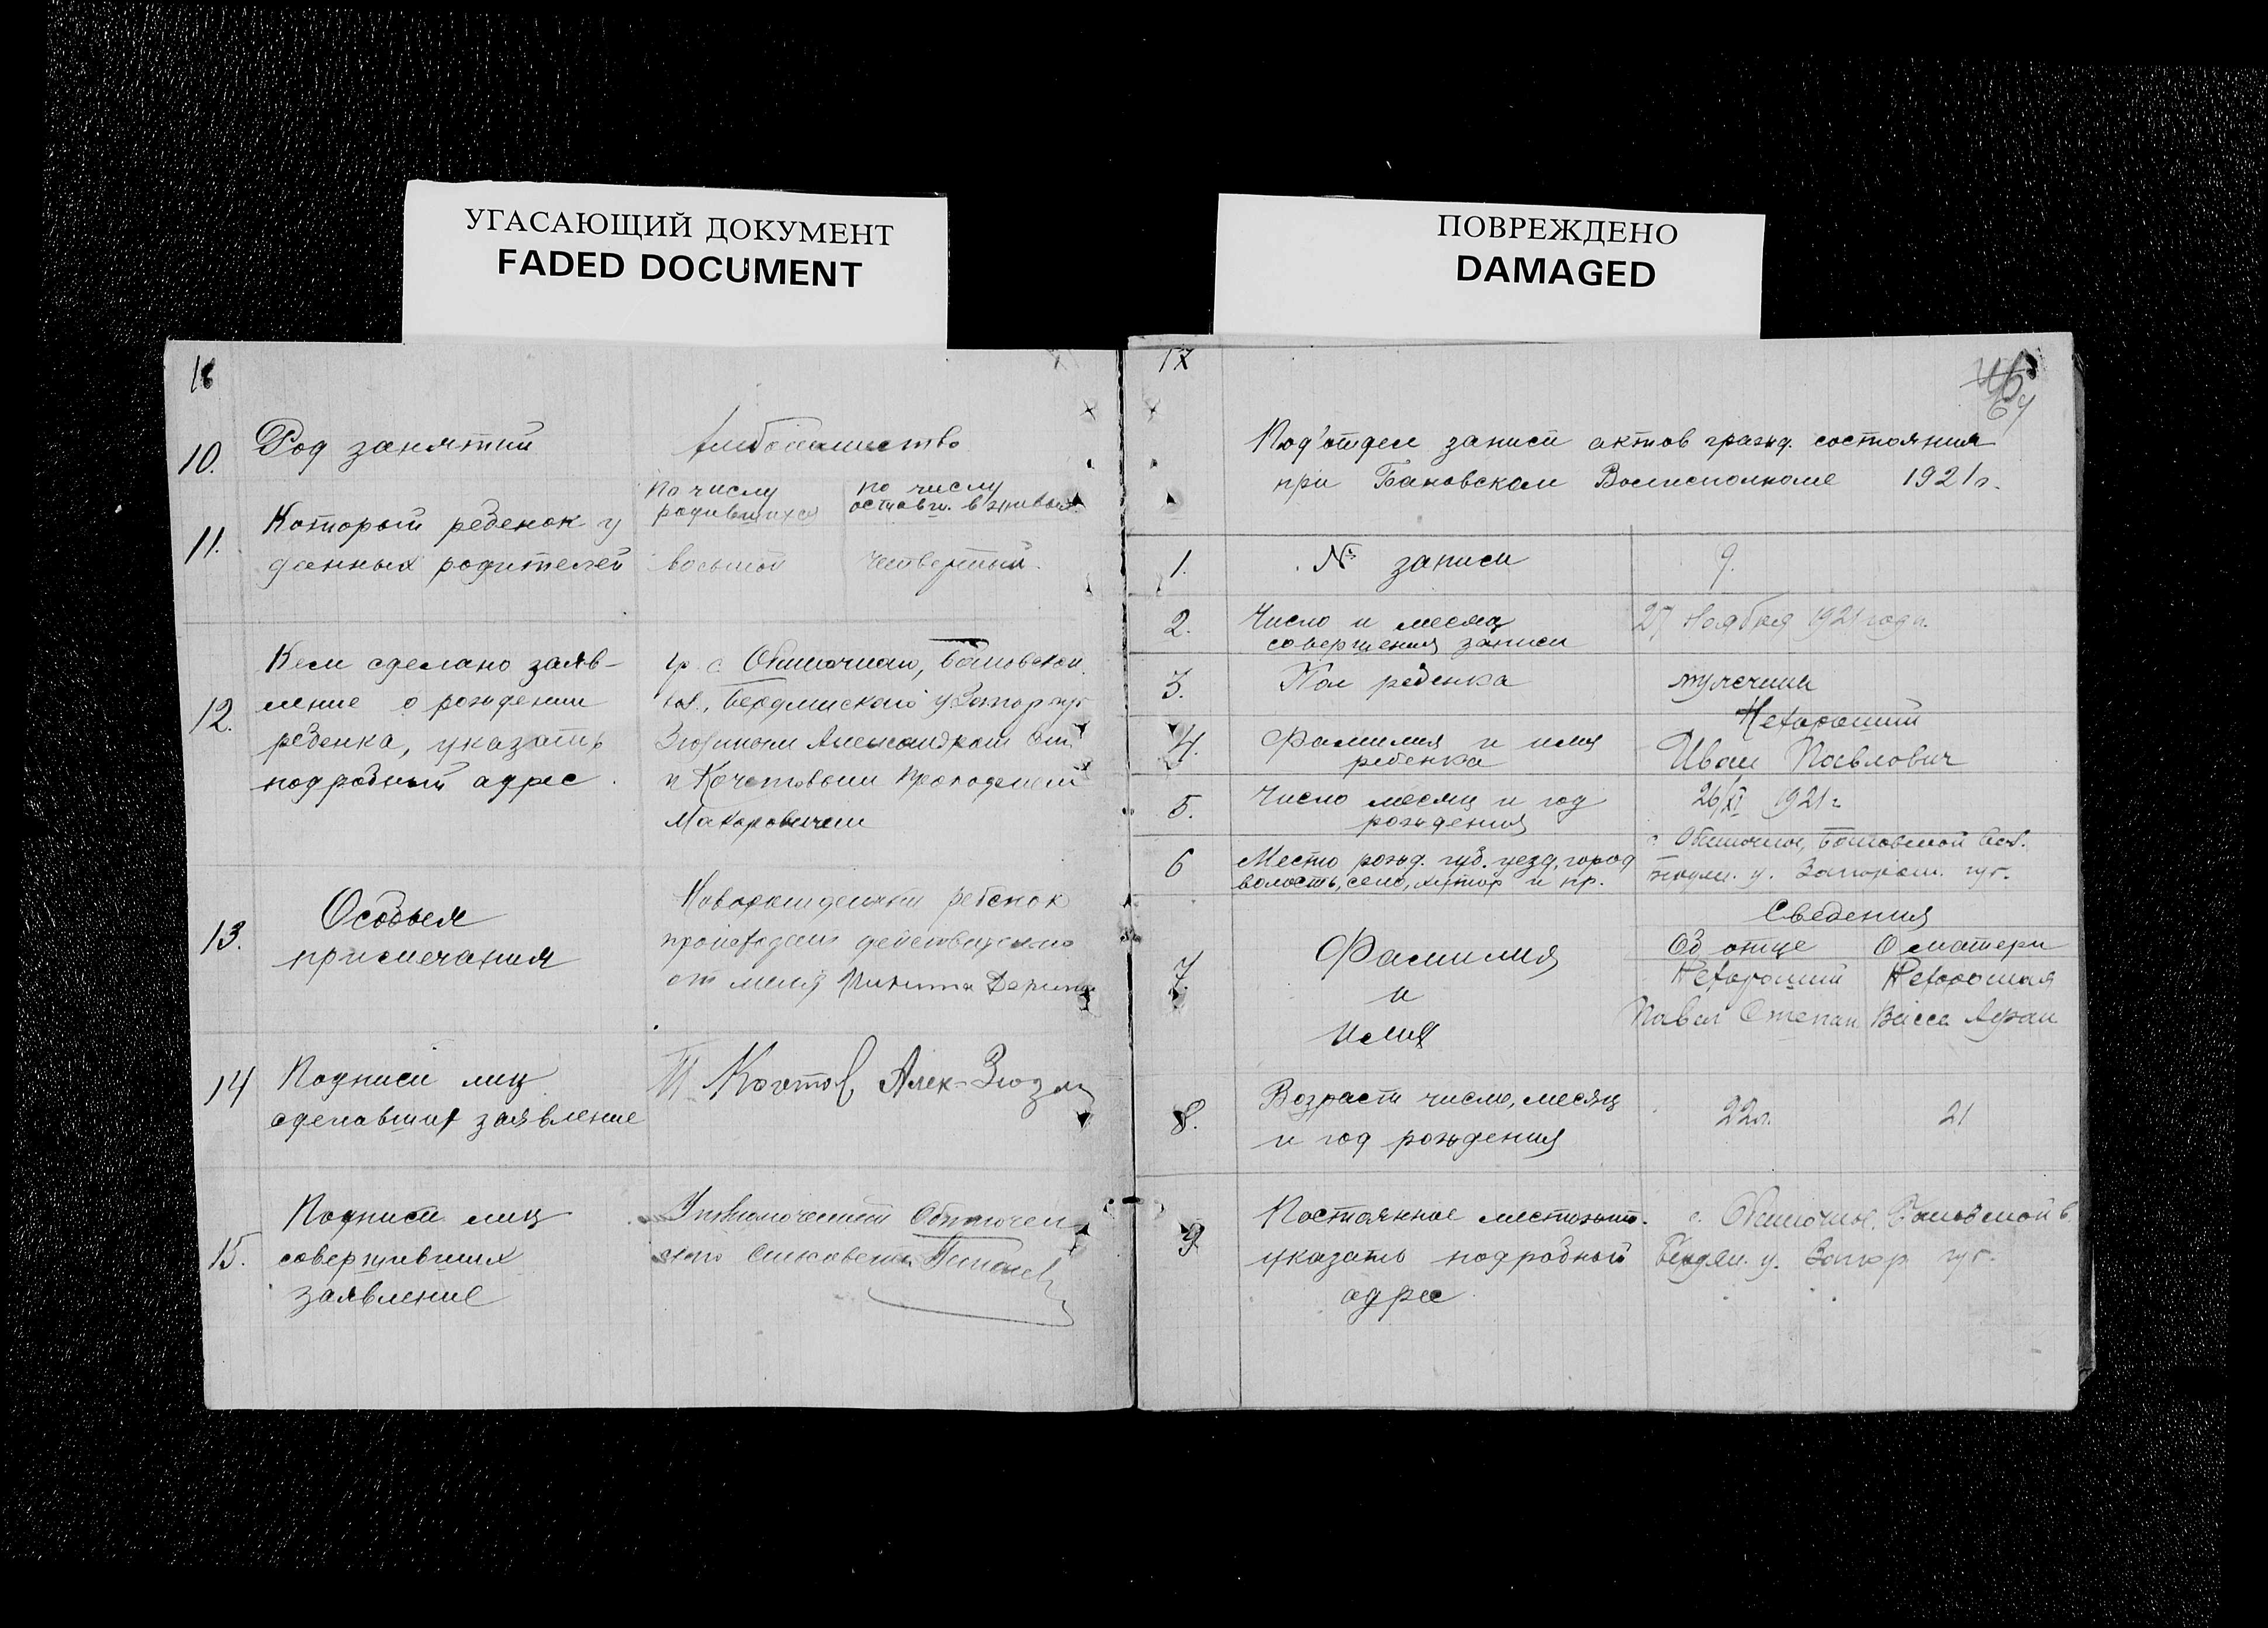 УГАСАЮЩИЙ ДОКУМЕНТ
FADED DOCUMENT
16
10. Род занятий
хлебопашество
11. Который ребенок у данных родителей
по числу родившихся
по числу оставш. в живых
восьмой
четвертый
12. Кем сделано заяв-
ление о рождении
ребенка, указать
подробный адрес.
гр. с. Обиточного, Бановской
вол., Бердянского у Запор. губ
Александром
и Кочетовым
Макаровичем
13. Особыя
примечания
Новорожденный ребенок
происходит действительно
от меня Никита
14 Подписи лиц
сделавших заявление
Алек.
15. Подписи лиц
совершивших
заявление
Уполномоченный Обиточен
ского
ПОВРЕЖДЕНО
DAMAGED
17
46
64
Под'отдел записи актов гражд. состояния
при Бановском Волисполкоме 1921 г.
1. № записи
9.
2. Число и месяц
совершения записи
27 Ноября 1921 года.
3. Пол ребенка
мужчина
4. Фамилия и имя
ребенка
Нехороший
Иван Павлович
5. Число месяц и год
рождения
26/XI 1921 г
6 Место рожд. губ. уезд, город
волость, село, хутор и пр.
с. Обиточное, Бановской вол.
Бердян. у. Запорож. губ.
Сведения
Об отце О матери
7. Фамилия
и
имя
Нехороший Нехорошая
Павел Степан Васса
8. Возраст число, месяц
и год рождения
22 л. 21
9. Постоянное местожит.
указать подробный
адрес
с. Обиточное, Бановской в.
Бердян. у. Запор. губ.